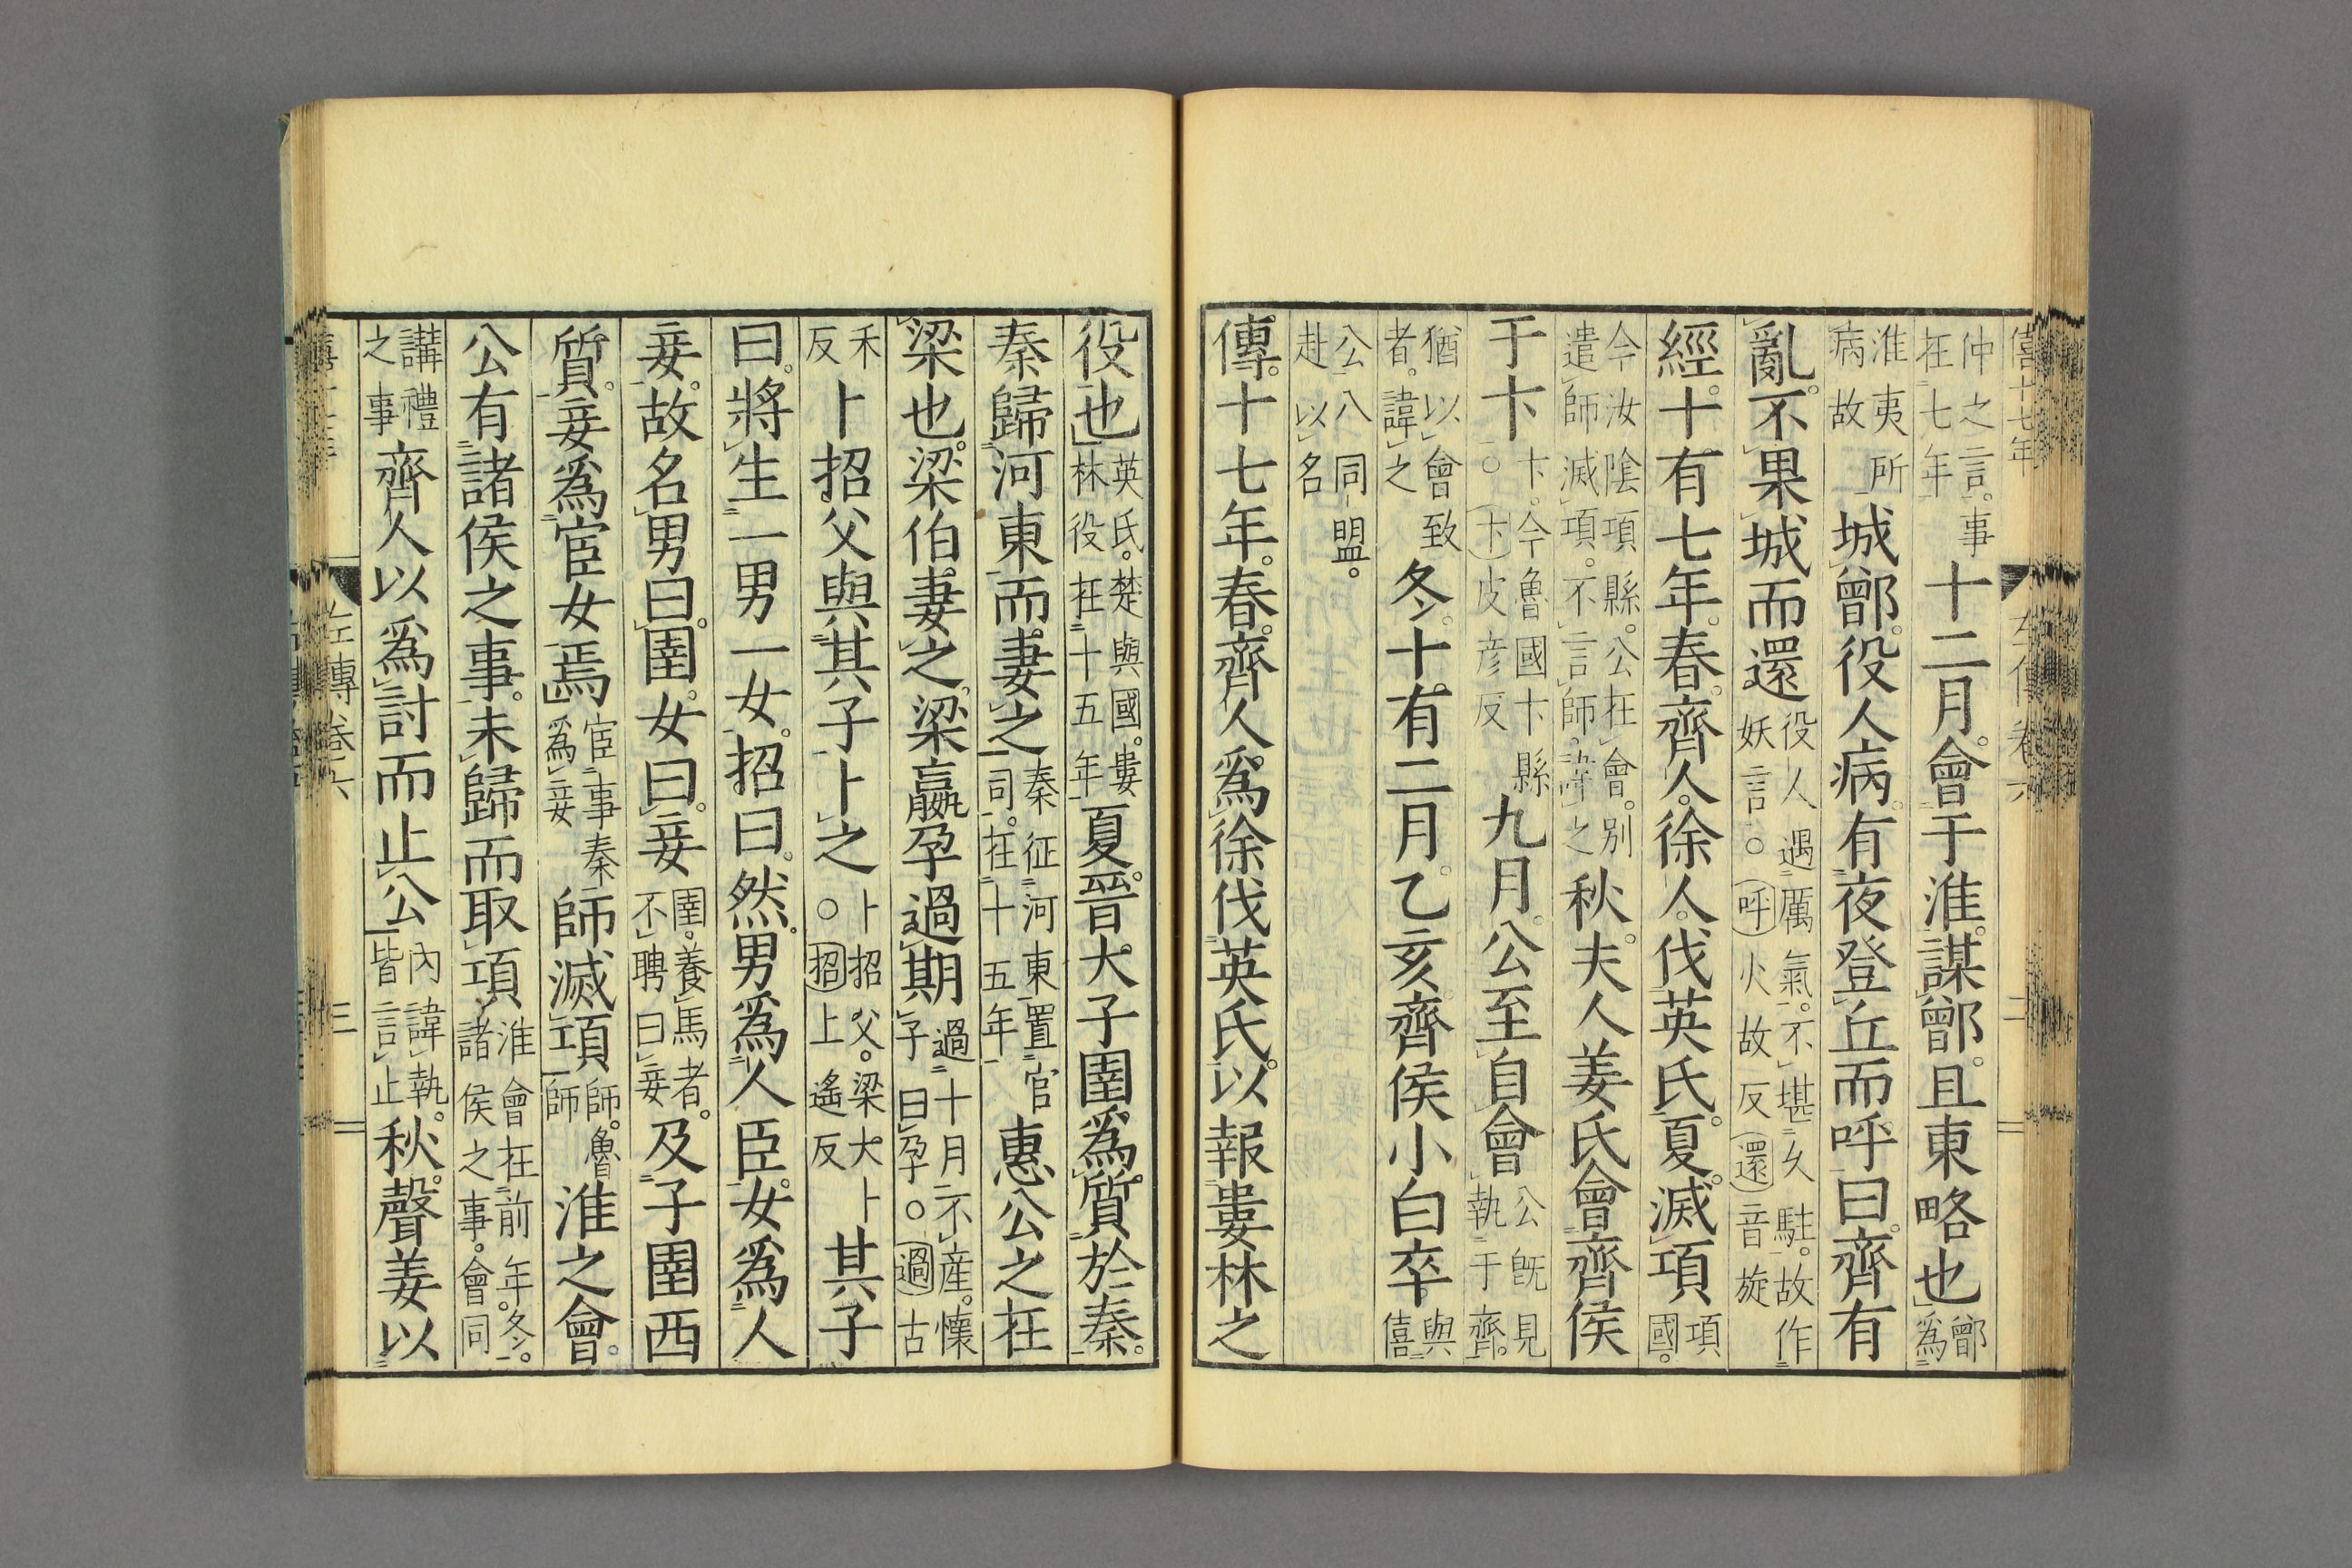 僖十七年 左傳卷六 二
仲之言。事在七年 十二月。會于淮。謀鄫。且東略也 鄫爲
淮夷所病故 城鄫。役人病。有夜登丘而呼曰。齊有
亂。不果城而還 役人遇厲氣。不堪久駐。故作妖言。○呼火故反還音旋
經。十有七年。春。齊人。徐人。伐英氏。夏。滅項 項國。
今汝陰項縣。公在會。別遣師滅項。不言師。諱之 秋。夫人姜氏會齊侯
于卞 卞。今魯國卞縣○卞皮彥反 九月。公至自會 公既見執于齊。
猶以會致者。諱之 冬。十有二月。乙亥。齊侯小白卒。與僖
公八同盟。赴以名
傳。十七年。春。齊人。爲徐伐英氏。以報婁林之
役也 英氏。楚與國。婁林役在十五年 夏。晉。大子圉爲質於秦。
秦歸河東而妻之 秦征河東置官司。在十五年 惠公之在
梁也。梁伯。妻之。梁嬴孕過期 過十月不產。懷子曰孕。○過古
禾反 卜招父與其子卜之 卜招父。梁大卜○招上遙反 其子
曰。將生一男一女。招曰。然。男爲人臣。女爲人
妾。故名男曰圉。女曰妾 圉。養馬者。不聘曰妾 及子圉西
質。妾爲宦女焉 宦事秦爲妾 師滅項 師。魯師 淮之會。
公有諸侯之事。未歸而取項 淮會在前年冬。諸侯之事。會同
講禮之事 齊人以爲討而止公 內諱執。皆言止 秋。聲姜以
左傳卷六 三